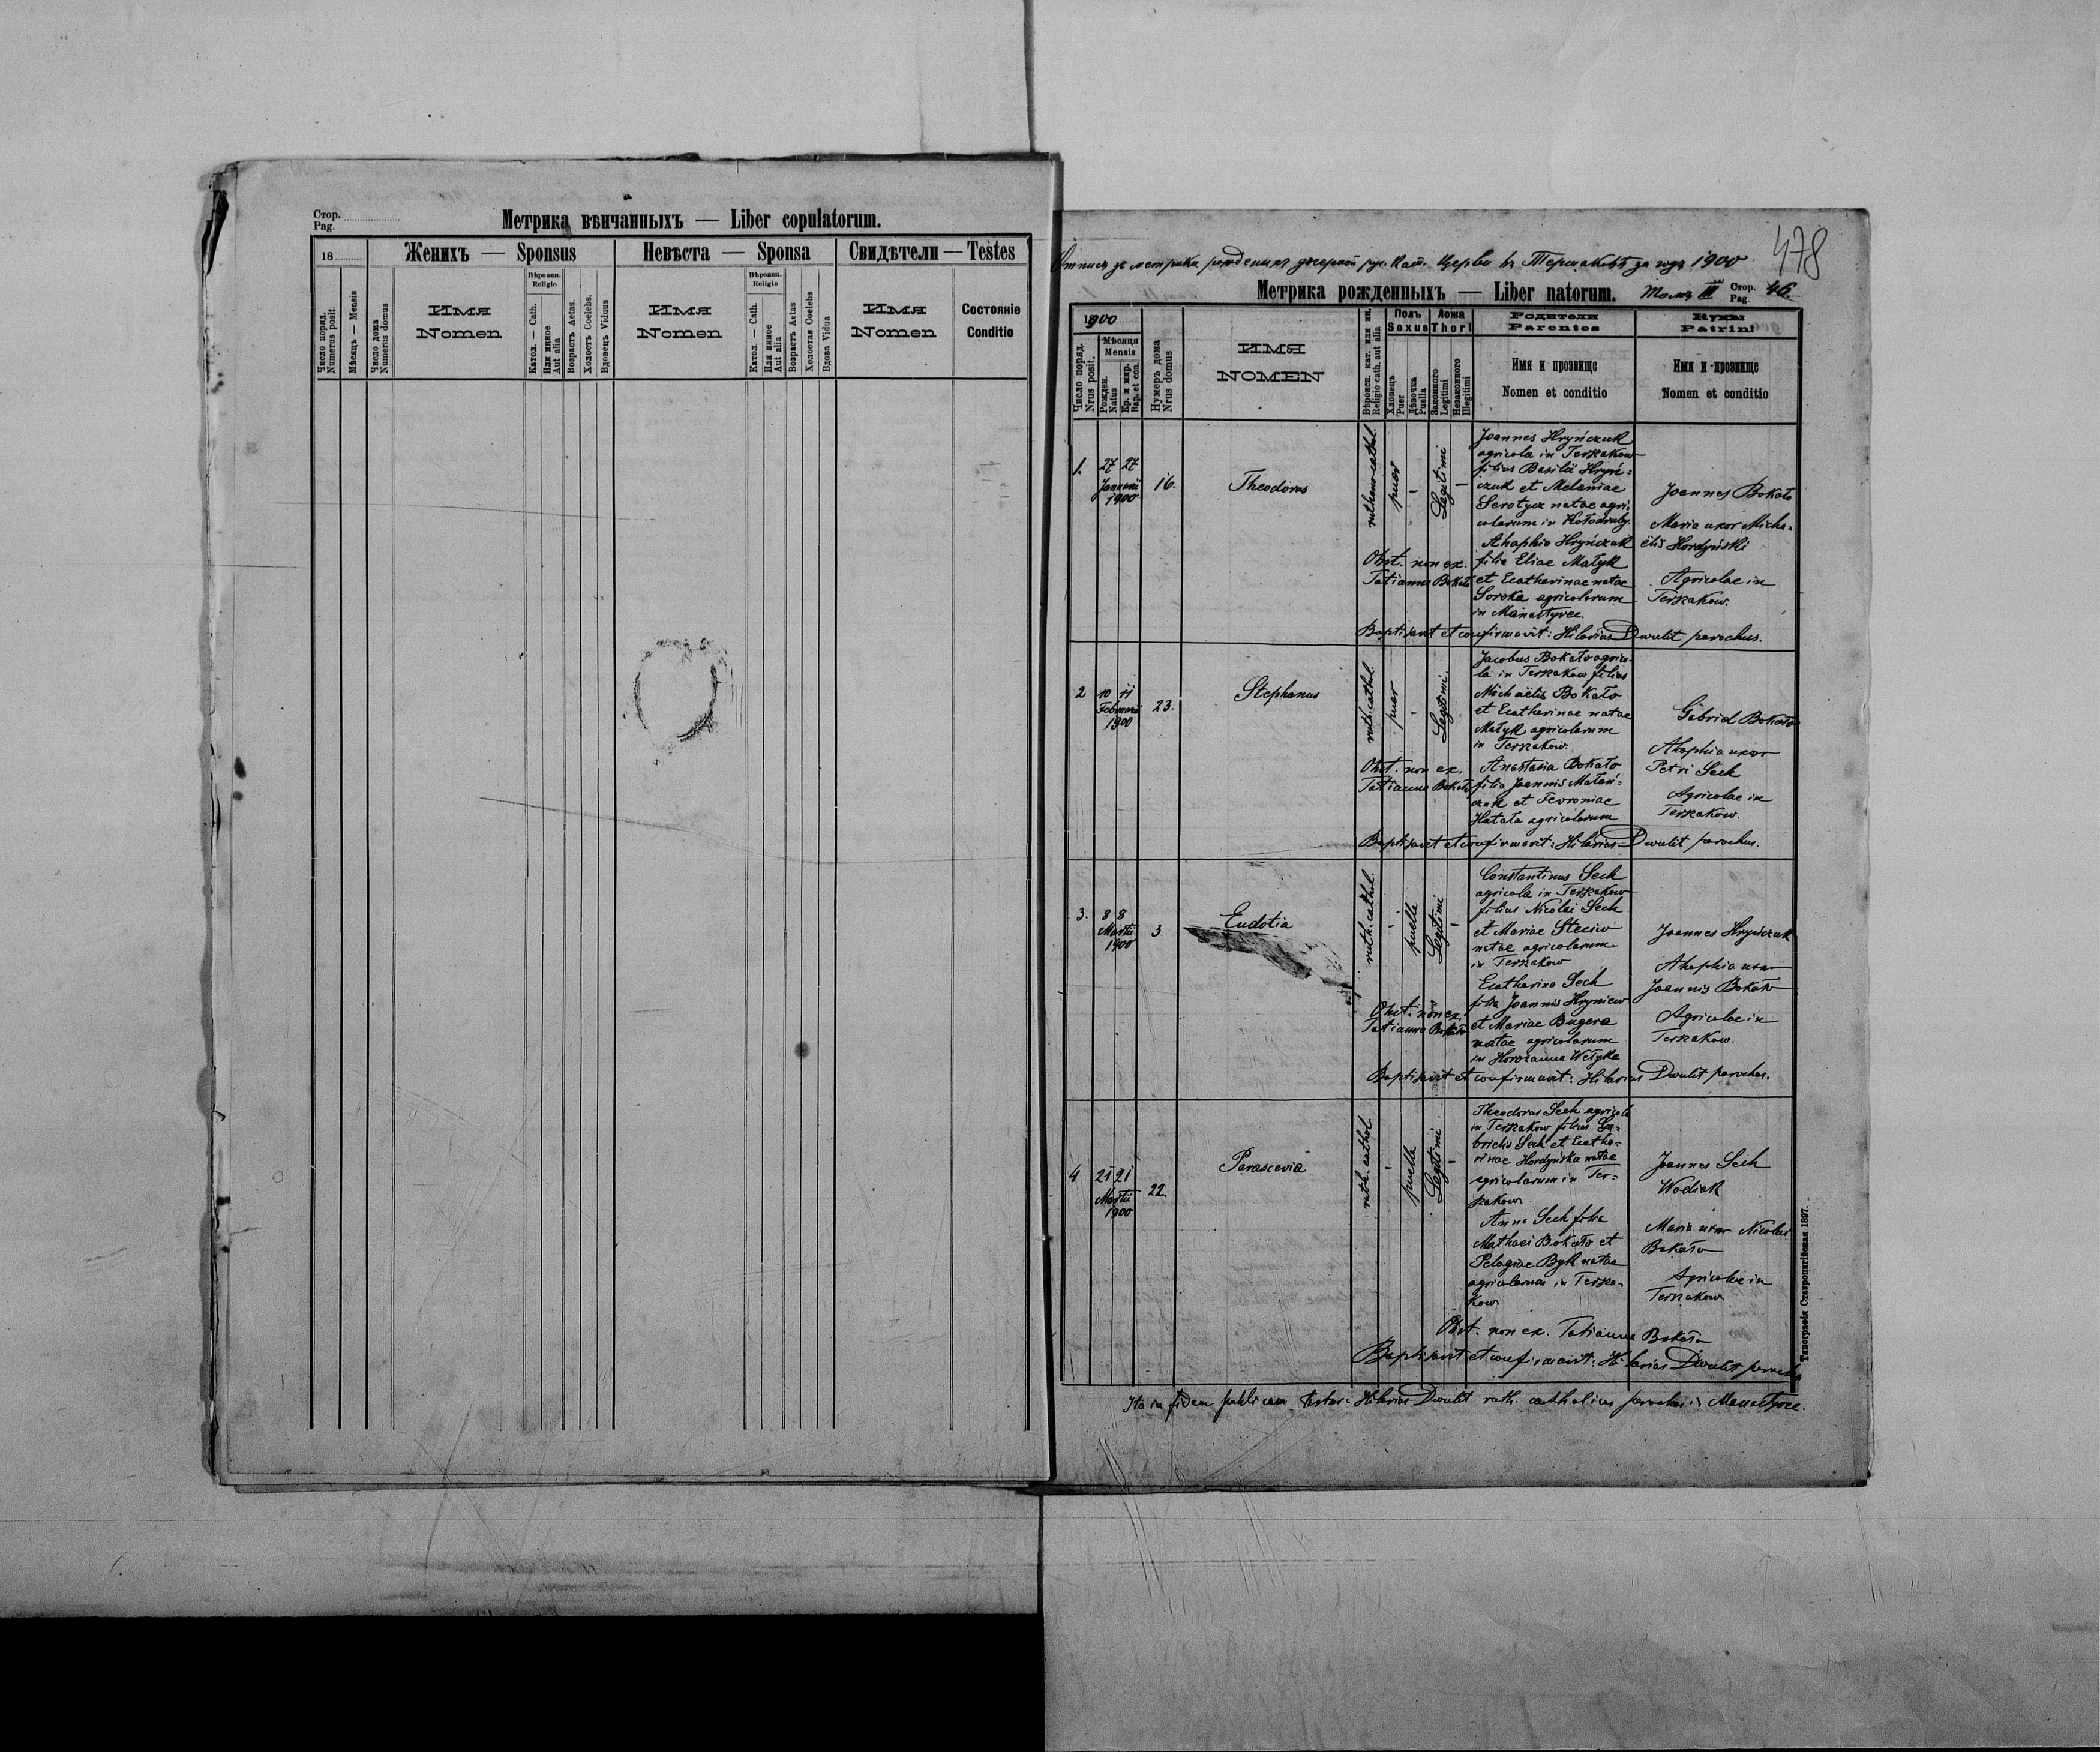 Стор.
Pag.
Метрика вѣнчанныхъ — Liber copulatorum.
18
Женихъ — Sponsus
Невѣста — Sponsa
Свидѣтели — Testes
Число поряд.
Numerus posit.
Мѣсяцъ — Mensis
Число дома
Numerus domus
Имя
Nomen
Вѣроисп.
Religio
Катол. — Cath.
Или иное
Aut alia
Возрастъ Aetas.
Холостъ Coelebs.
Вдовецъ Viduus
Имя
Nomen
Вѣроисп.
Religio
Катол. — Cath.
Или иное
Aut alia
Возрастъ Aetas
Холостая Coelebs
Вдова Vidua
Имя
Nomen
Состояніе
Conditio
478
за годъ 1900
Метрика рожденныхъ — Liber natorum. Томъ III Стор.
Pag. 46.
1900
Число поряд.
Nrus posit.
Мѣсяця
Mensis
Рожден.
Natus
Кр. и мир.
Bap. et con.
Нумеръ дома
Nrus domus
ИМЯ
NOMEN
Вѣроисп. кат. или ин.
Religio cath. aut alia
Полъ
Sexus
Хлопецъ
Puer
Дѣвочка
Puella
Ложа
Thori
Законного
Legitimi
Незаконного
Illegitimi
Родители
Parentes
Имя и прозвище
Nomen et conditio
Кумы
Patrini
Имя и прозвище
Nomen et conditio
1.
27 27
Januarii
1900
16.
Theodorus
rutheno-cathol.
puer
-
Legitimi
-
Joannes Hryńczuk
agricola in Terszakow
filius Basilii Hryń-
czuk et Melaniae
Serotycz natae agri-
colarum in Kołodruby.
Ahaphia Hryńczuk
filia Eliae Małyk
et Ecatherinae natae
Soroka agricolarum
in Manastyrec
Joannes Bokało
Maria uxor Micha-
ëlis Hordyński
Agricolae in
Terszakow.
Obst. non ex.
Tatianna Bokało
Baptisavit et confirmavit: Hilarius Dwulit parochus.
2
10 11
Februarii
1900
23.
Stephanus
ruth. cathol.
puer
-
Legitimi
Jacobus Bokało agrico-
la in Terszakow filius
Michaëlis Bokało
et Ecatherinae natae
Małyk agricolarum
in Terszakow.
Anastasia Bokało
filia Joannis Małań-
czuk et Fevroniae
Hatała agricolarum
Gabriel Bokało
Ahaphia uxor
Petri Sech
Agricolae in
Terszakow.
Obst. non ex.
Tatianna Bokało
Baptisavit et confirmavit: Hilarius Dwulit parochus.
3.
8 8
Martii
1900
3
Eudotia
ruth. cathol.
-
puella
Legitimi
-
Constantinus Sech
agricola in Terszakow
filius Nicolai Sech
et Mariae Steciw
natae agricolarum
in Terszakow
Ecatharina Sech
filia Joannis Hryniew
et Mariae Bugera
natae agricolarum
in Horożanna Wełyka
Joannes Hryńczuk
Ahaphia uxor
Joannis Bokało
Agricolae in
Terszakow.
Obst. non ex.
Tatianna Bokało
Baptisavit et confirmavit: Hilarius Dwulit parochus.
4
21 21
Martii
1900
22.
Parascevia
ruth. cathol.
-
puella
Legitimi
-
Theodorus Sech agricola
in Terszakow filius Ga-
brielis Sech et Ecatha-
rinae Hordyńska natae
agricolarum in Ter-
szakow
Anna Sech filia
Mathaei Bokało et
Pelagiae Byk natae
agricolarum in Tersza-
kow
Joannes Sech
Wodiak
Maria uxor Nicolai
Bokało
Agricolae in
Terszakow
Obst. non ex. Tatianna Bokało
Baptisavit et confirmavit: Hilarius Dwulit parochus
Ita in fidem publicam testor: Hilarius Dwulit ruth. catholicus parochus in Manastyrec.
Типографія Ставропигійская 1897.